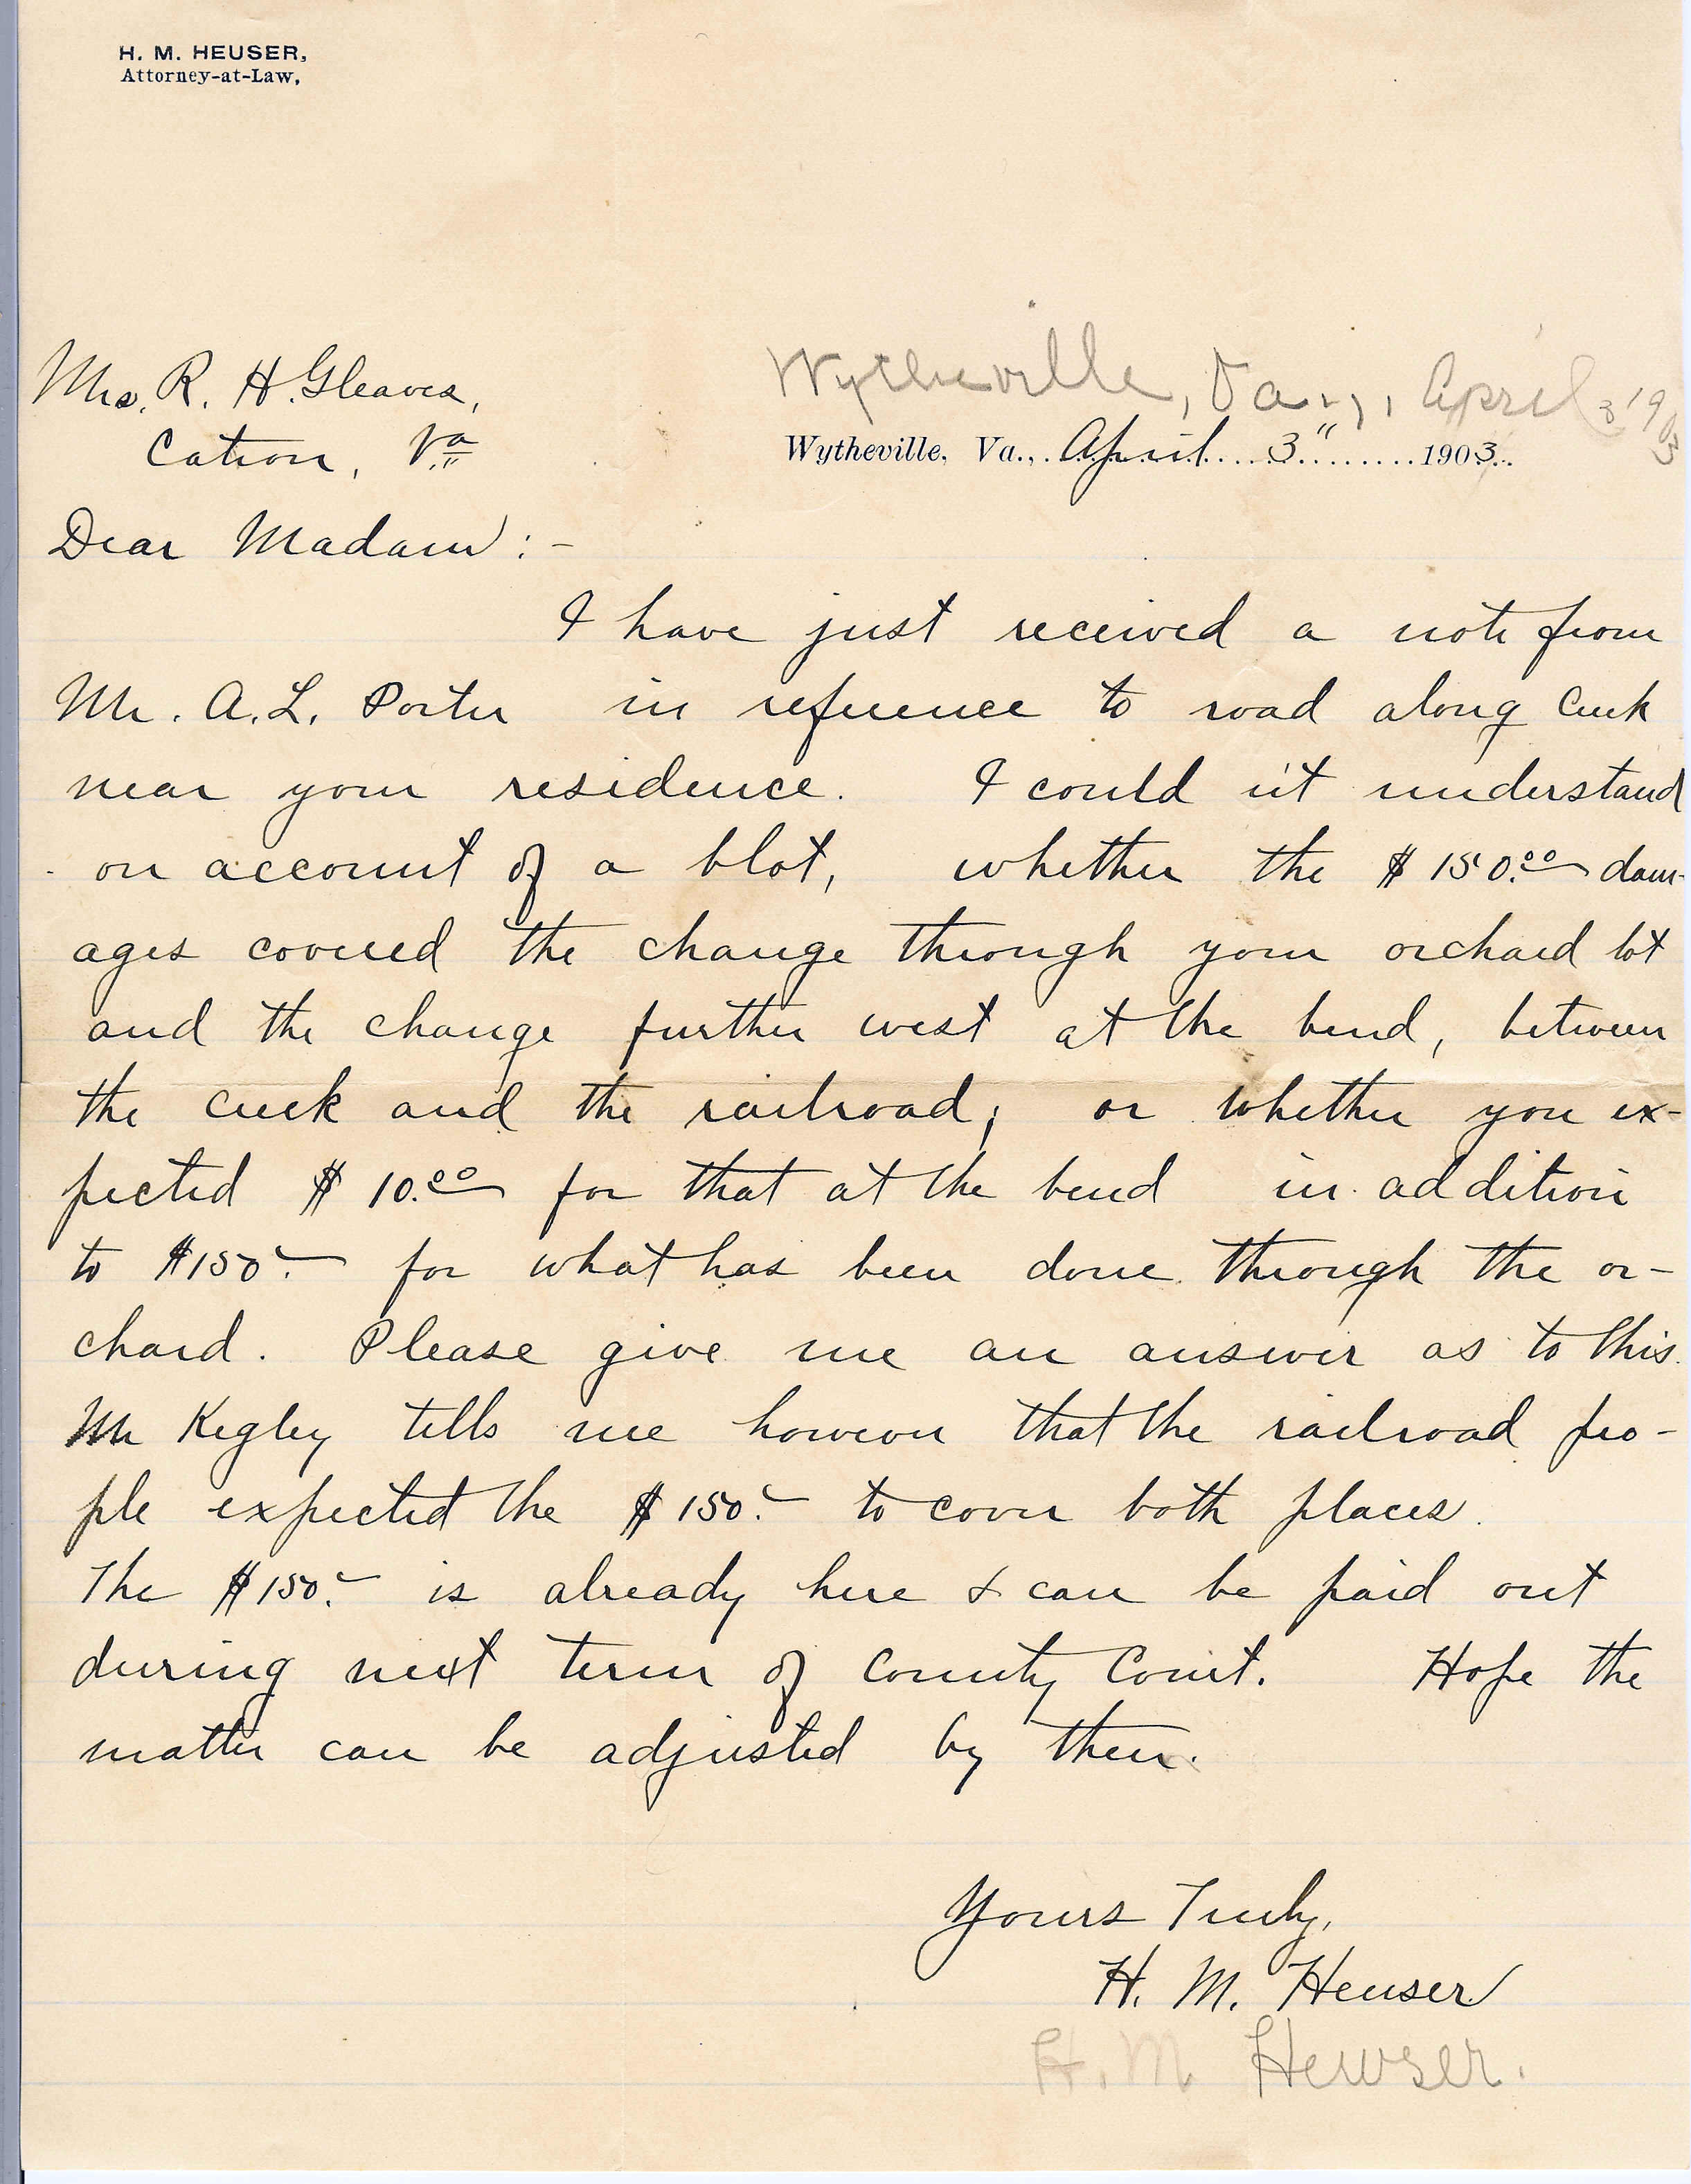 H. M. HEUSER,
Attorney-at-Law,
Wytheville, Va., April 3 1903
Mrs. R. H. Gleaves,
Catron, Va
Wytheville, Va., April 3" 1903.
Dear Madam :-
I have just received a note from
Mr. A. L. Porter in reference to road along Creek
near your residence. I could n't understand
on account of a blot, whether the $150.00 dam-
ages covered the change through your orchard lot
and the change further west at the bend, between
the creek and the railroad; or whether you ex-
pected $10.00 for that at the bend in addition
to $150.- for what has been done through the or-
chard. Please give me an answer as to this.
Mr Kegley tells me however that the railroad peo-
ple expected the $150.- to cover both places.
The $150.- is already here & can be paid out
during next term of County Court. Hope the
matter can be adjusted by then.
Yours Truly,
H. M. Heuser
H. M. Hewser.